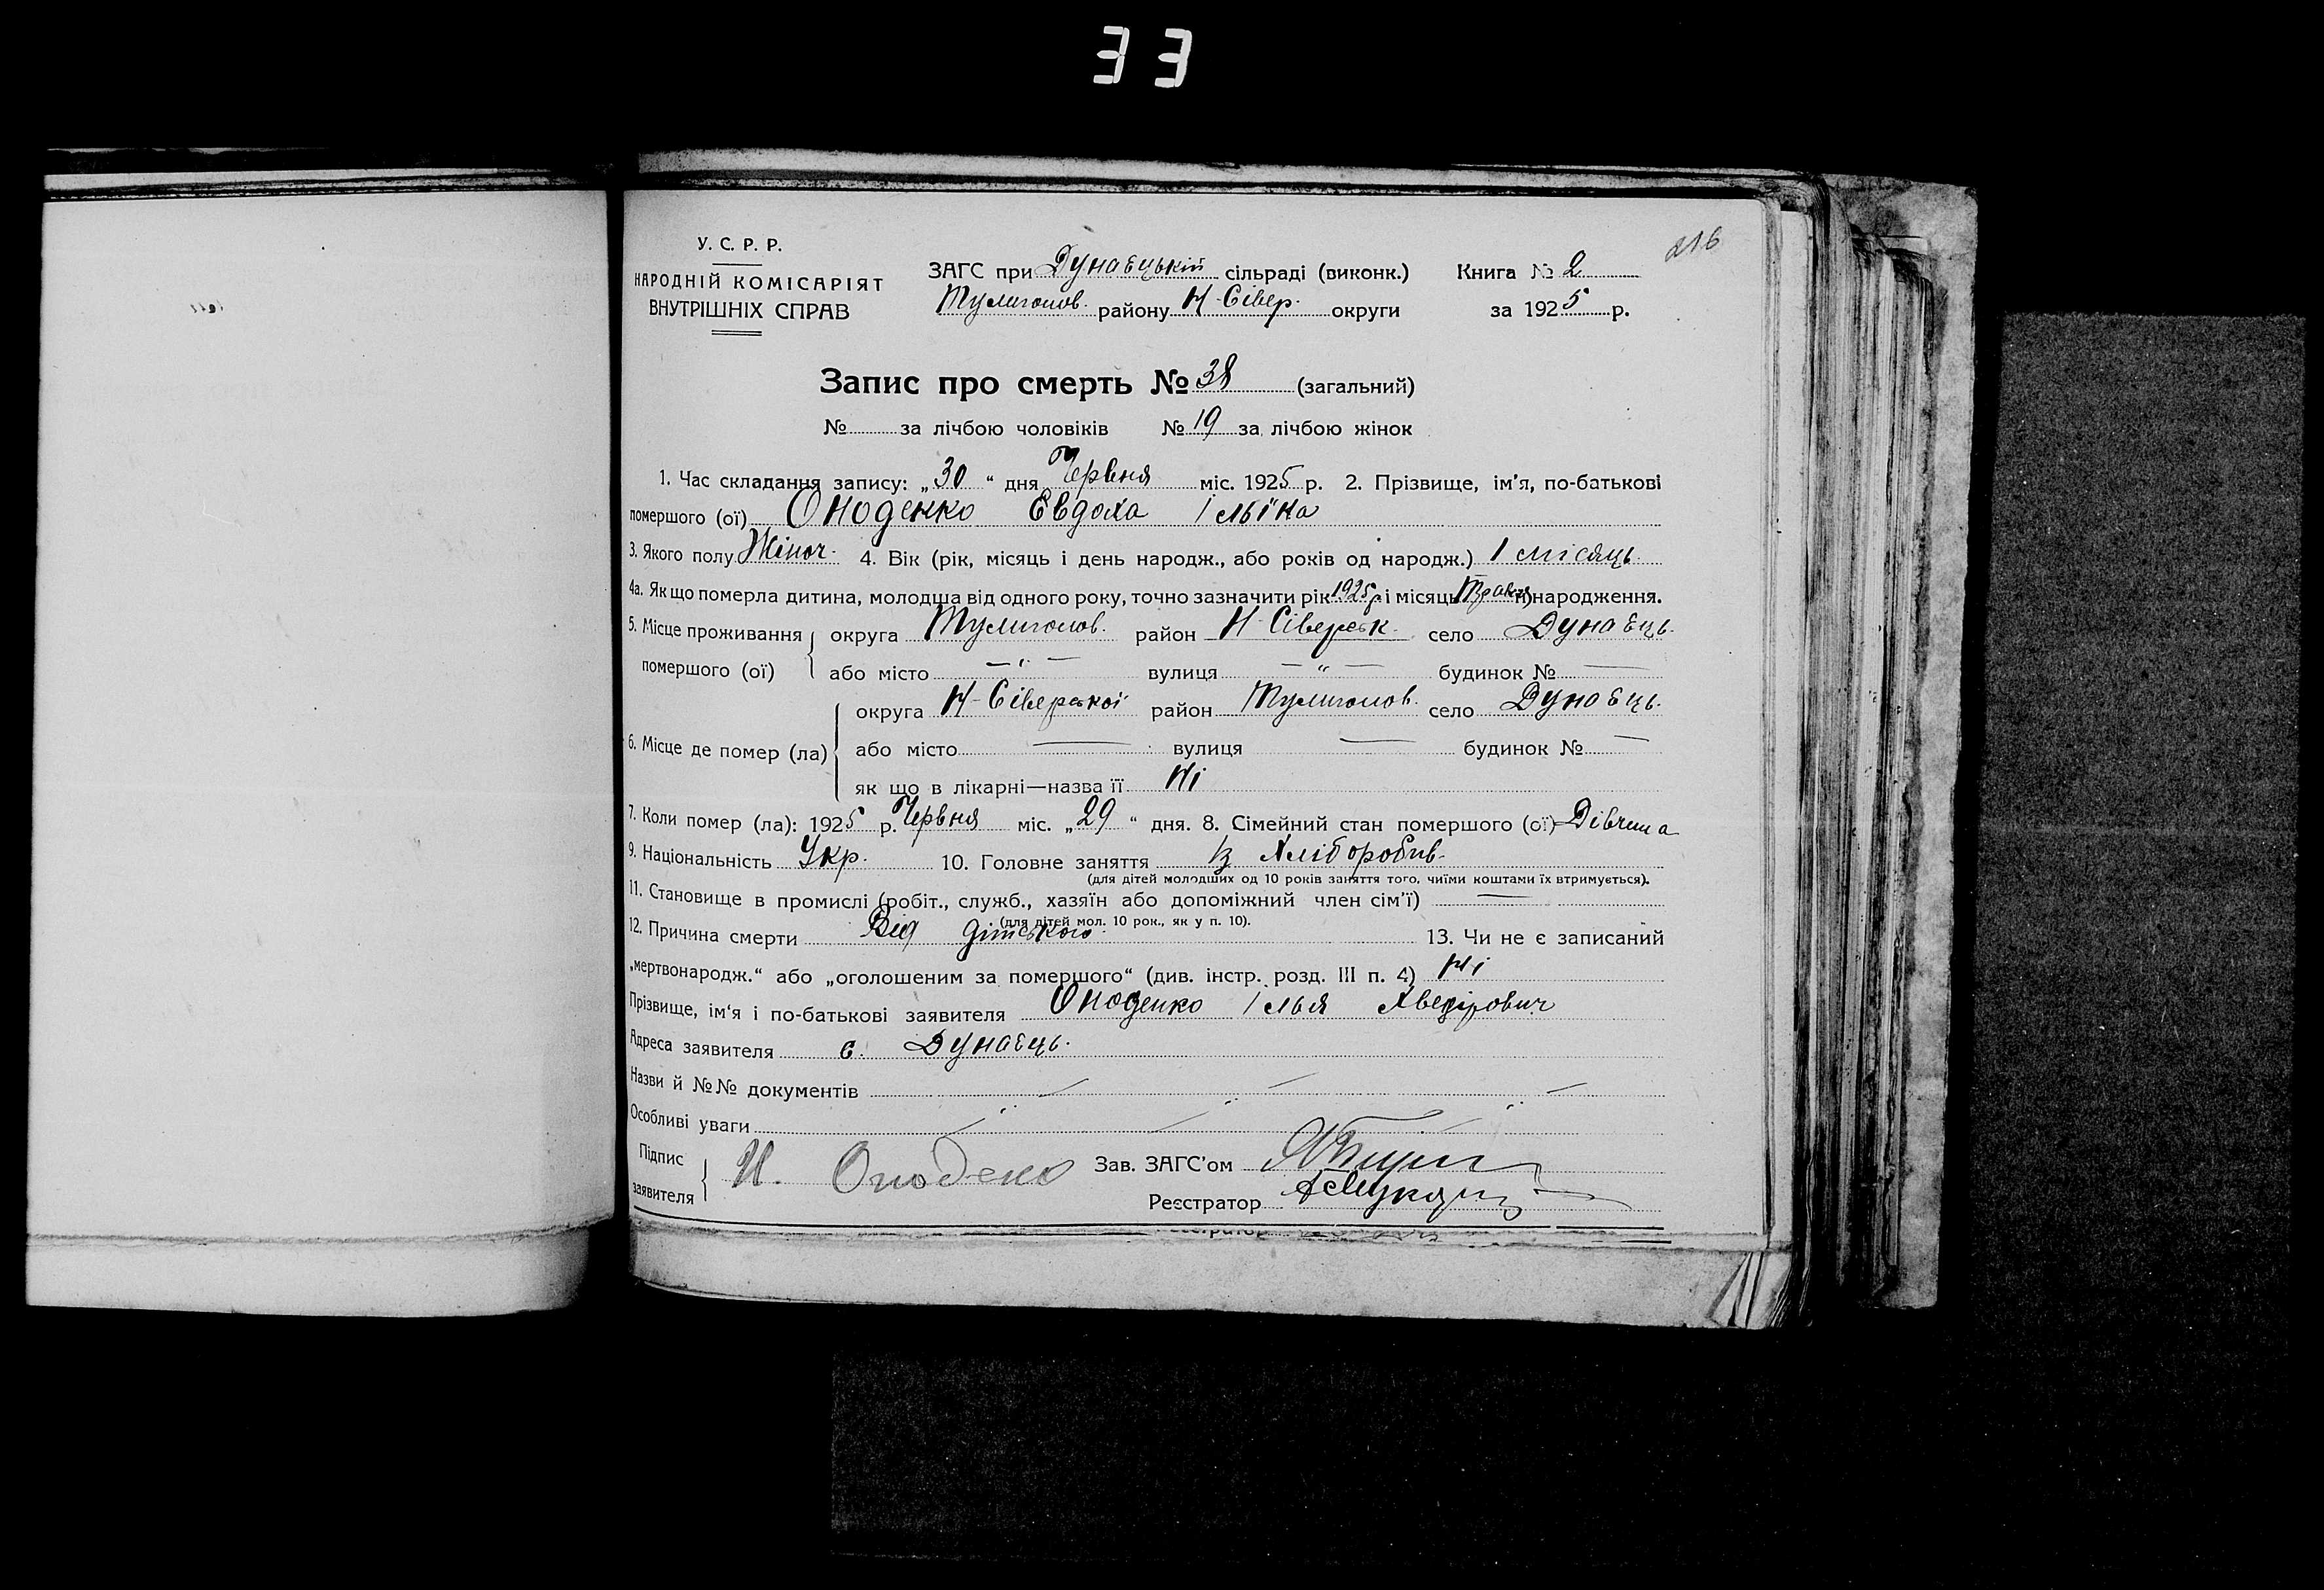 33
216
У. С. Р. Р.
НАРОДНІЙ КОМІСАРІЯТ
ВНУТРІШНІХ СПРАВ
ЗАГС при Дунаєцькій сільраді (виконк.) Книга № 2
Тулиголов. району Н-Сівер. округи за 1925 р.
Запис про смерть № 38 (загальний)
№ за лічбою чоловіків № 19 за лічбою жінок
1. Час складання запису: „30“ дня Червня міс. 1925 р. 2. Прізвище, ім'я, по-батькові
помершого (ої) Оноденко Евдоха Ільїна
3. Якого полу Жіноч. 4. Вік (рік, місяць і день народж., або років од народж.) 1 місяць
4а. Як що померла дитина, молодша від одного року, точно зазначити рік 1925 р і місяць Травня народження.
5. Місце проживання помершого (ої) округа Тулиголов. район Н-Сіверськ. село Дунаєць.
або місто — " — вулиця — " — будинок № —
6. Місце де помер (ла) округа Н-Сіверської район Тулиголов. село Дунаєць.
або місто — вулиця — будинок № —
як що в лікарні—назва її Ні
7. Коли помер (ла): 1925 р. Червня міс. „29“ дня. 8. Сімейний стан помершого (ої) Дівчина
9. Національність Укр. 10. Головне заняття Із Хліборобів
(для дітей молодших од 10 років заняття того, чиїми коштами їх втримується).
11. Становище в промислі (робіт., служб., хазяїн або допоміжний член сім'ї) —
(для дітей мол. 10 рок., як у п. 10).
12. Причина смерти Від дітського 13. Чи не є записаний
„мертвонародж.“ або „оголошеним за помершого“ (див. інстр. розд. III п. 4) Ні
Прізвище, ім'я і по-батькові заявителя Оноденко Ілья Хведірович
Адреса заявителя с. Дунаєць.
Назви й №№ документів
Особливі уваги
Підпис заявителя И. Оноденко Зав. ЗАГС'ом
Реєстратор